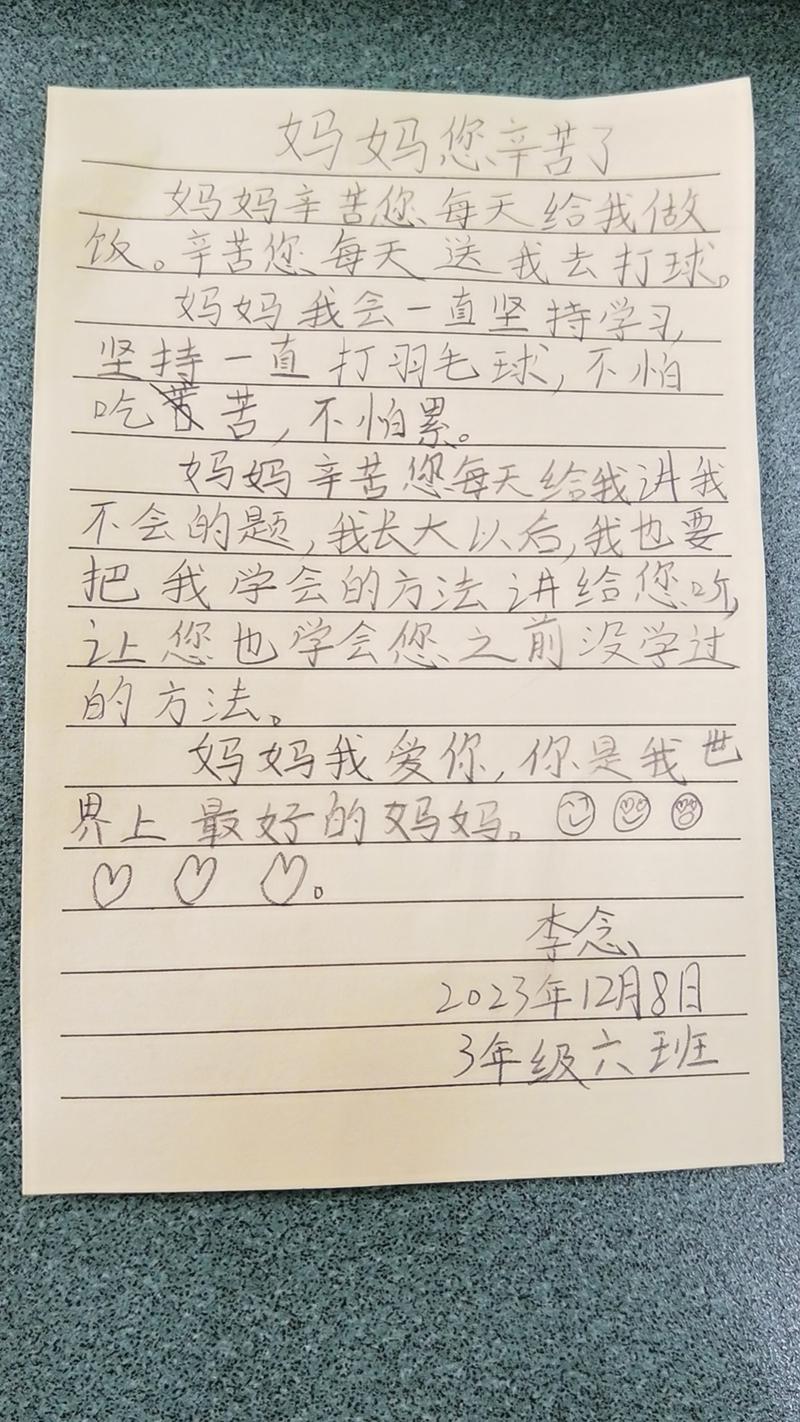 妈妈您辛苦了
妈妈辛苦您每天给我做
饭。辛苦您每天送我去打球。
妈妈我会一直坚持学习,
坚持一直打羽毛球,不怕
吃苦,不怕累。
妈妈辛苦您每天给我讲我
不会的题,我长大以后,我也要
把我学会的方法讲给您听,
让您也学会您之前没学过
的方法。
妈妈我爱你,你是我世
界上最好的妈妈。
李念
2023年12月8日
3年级六班